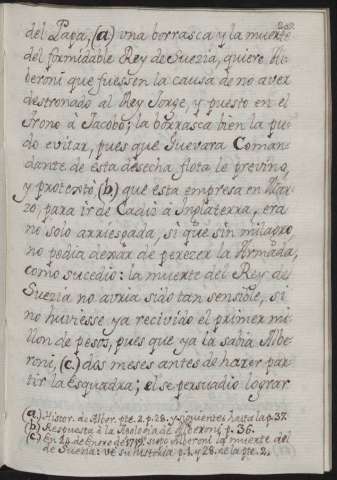 del Papa, (a) una borrasca y la muerte
del formidable Rey de Suezia, quiere Al-
beroni que fuessen la causa de no aver
destronado al Rey Jorge, y puesto en el
trono à Jacobo; la borrasca bien la pu-
do evitar, pues que Guevara Coman-
dante de esta desecha flota le previno,
y protextó, (b) que esta empresa en Mar-
zo, para ir de Cadiz à Inglaterra, era
no solo arriesgada, si que sin milagro
no podia dexar de perezer la Armada,
como sucedio: la muerte del Rey de
Suezia no avria sido tan sensible, si
no huviesse ya recivido el primer mi-
llon de pesos, pues que ya la sabia Albe-
roni, (c) dos meses antes de hazer par-
tir la esquadra; el se persuadio lograr
(a) Histor. de Alber. pte. 2. p. 28. y siguientes hasta la p. 37.
(b) Respuesta à la Apologia de Alberoni p. 36.
(c) En 24 de Enero de 1719. supo Alberoni la muerte del
de Suezia: ve su historia p. 1. y 28. de la pte. 2.